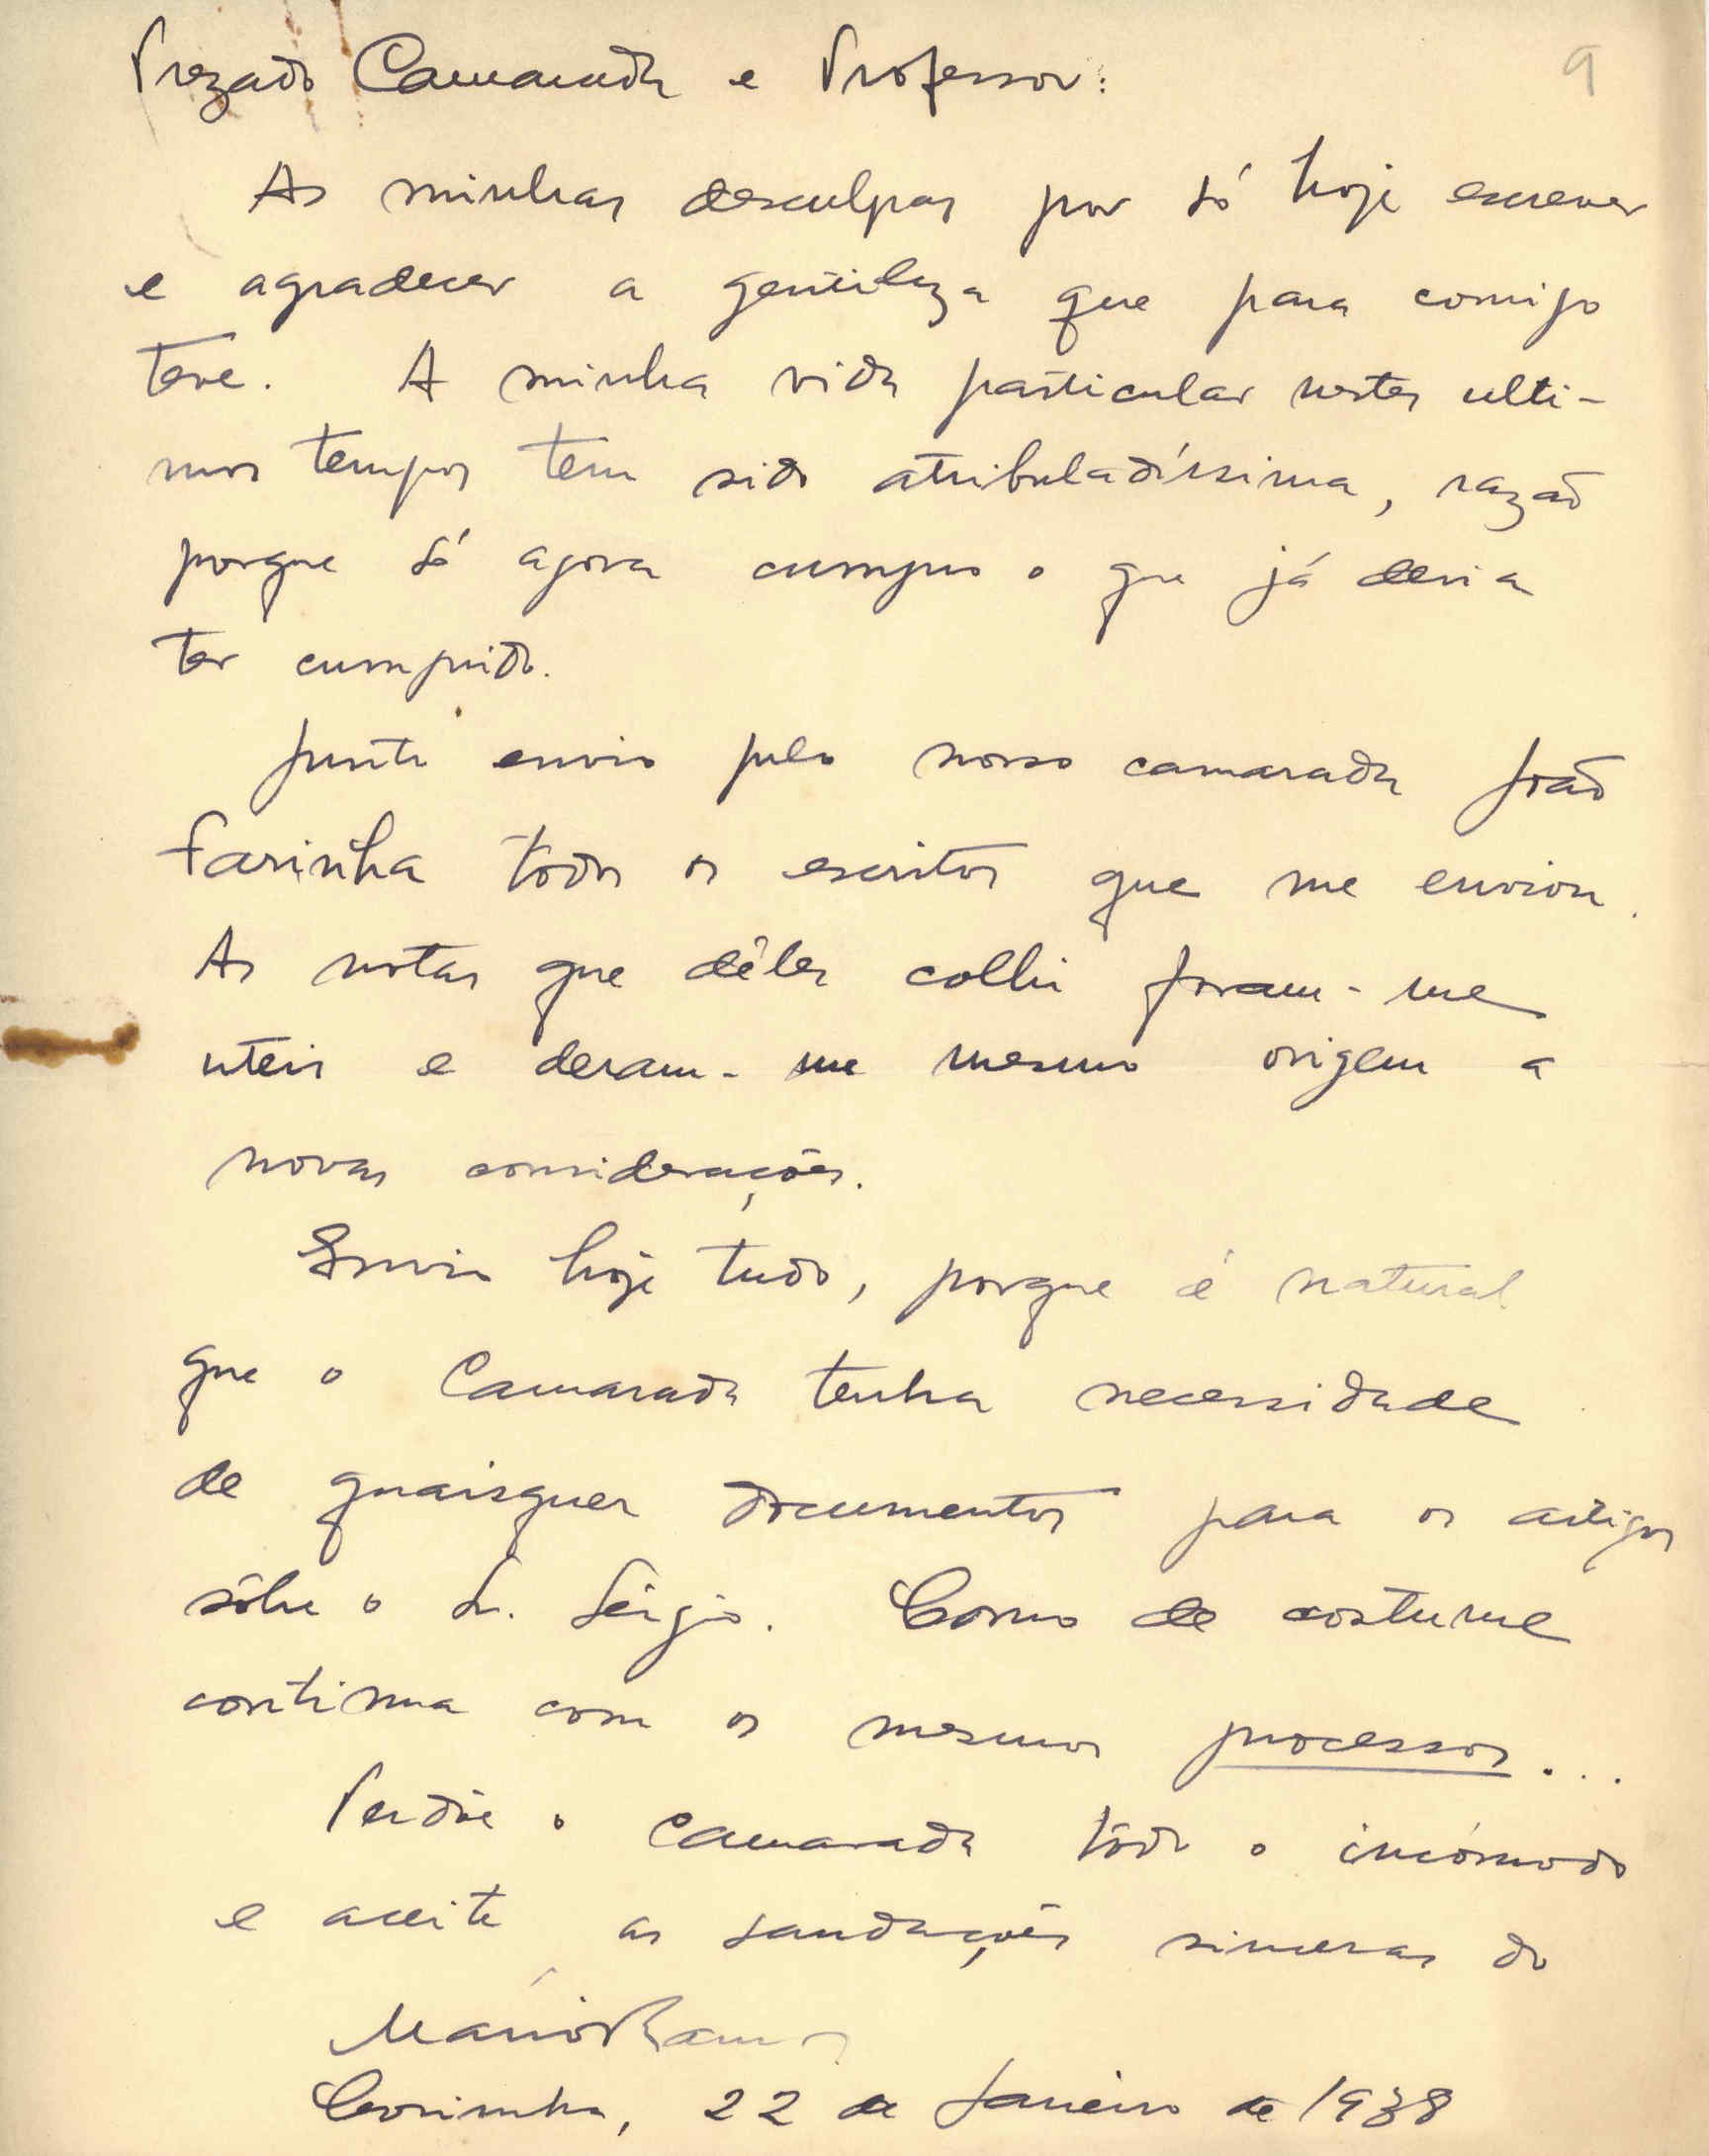 9
Prezado Camarada e Professor:
As minhas desculpas por só hoje escrever
e agradecer a gentileza que para comigo
teve. A minha vida particular nestes ulti-
mos tempos tem sido atribuladíssima, razão
porque só agora cumpro o que já devia
ter cumprido.
Junto envio pelo nosso camarada João
Farinha todos os escritos que me enviou.
As notas que dêles colhi foram-me
uteis e deram-me mesmo origem a
novas considerações.
Envio hoje tudo, porque é natural
que o Camarada tenha necessidade
de quaisquer documentos para os artigos
sôbre o Sr. Sérgio. Como de costume
continua com os mesmos processos...
Perdôe o Camarada todo o incómodo
e aceite as saudações sinceras do
Mário Ramos
Coimbra, 22 de Janeiro de 1938